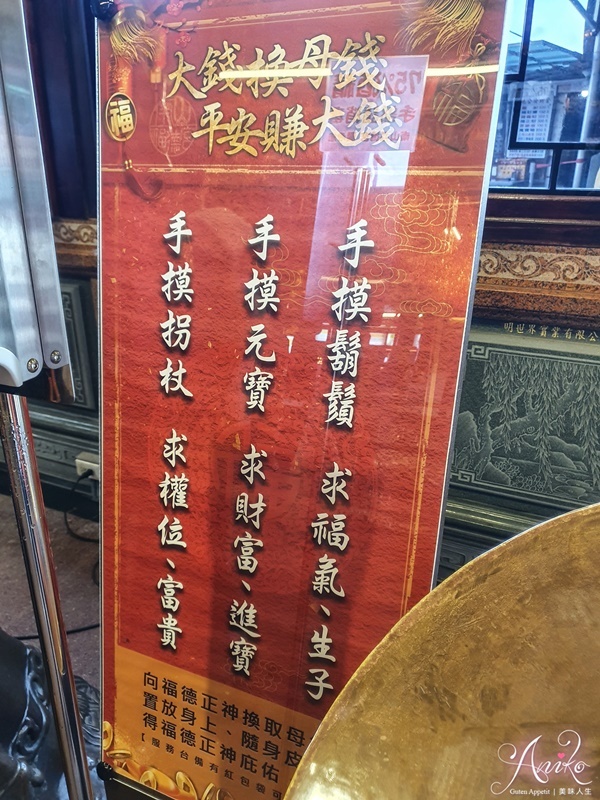 大錢換母錢
平安賺大錢
福
手摸鬍鬚 求福氣、生子
手摸元寶 求財富、進寶
手摸拐杖 求權位、富貴
向福德正神換取母
置放身上、隨身皮
得福德正神庇佑
【服務台備有紅包袋可
明世界實業有限公
Aniko
Guten Appetit | 美味人生